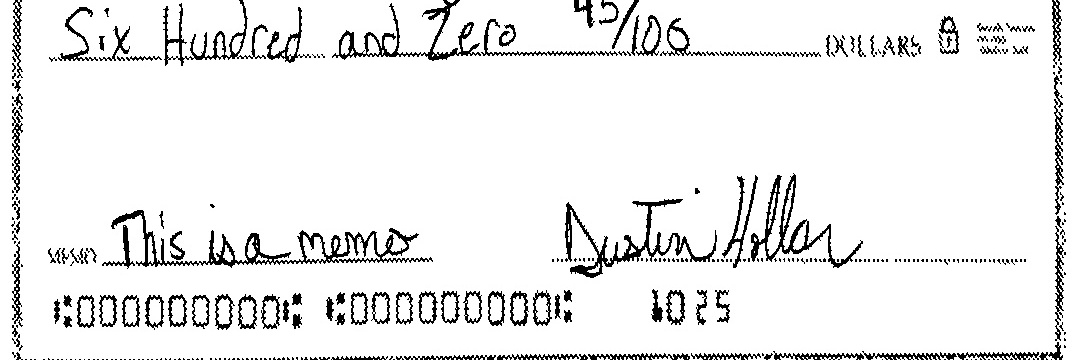 Six Hundred and Zero 45/100 DOLLARS
MEMO This is a memo Dustin Hollar
⑆000000000⑆ ⑆000000000⑆ 1025